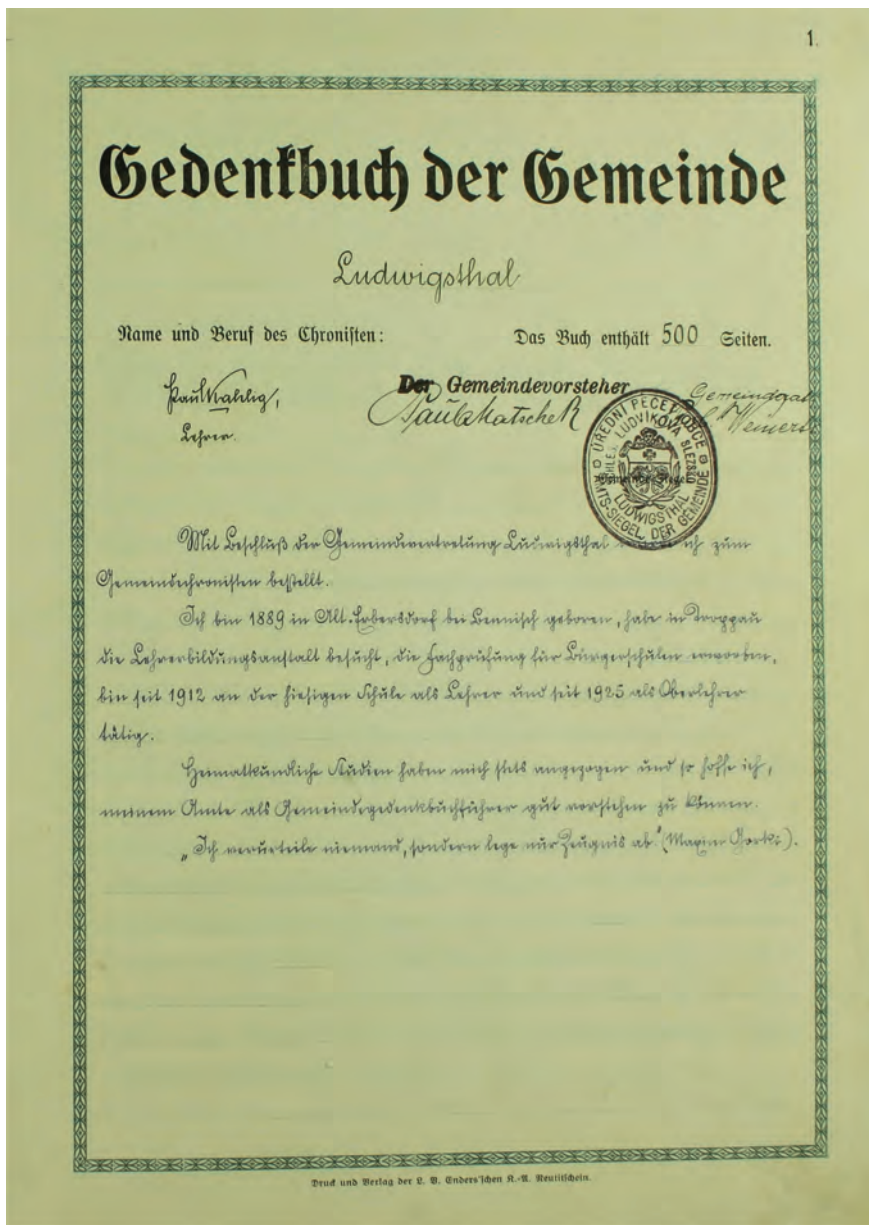 1.
Gedenkbuch der Gemeinde
Ludwigsthal
Name und Beruf des Chronisten:
Das Buch enthält 500 Seiten.
Paul Kahlig,
Lehrer.
Der Gemeindevorsteher
Paul Matschek
Gemeinderat
Weinert
ÚŘEDNÍ PEČEŤ OBCE
LUDVÍKOVA SLEZSKO
LUDWIGSTHAL
AMTS-SIEGEL DER GEMEINDE
Mit Beschluß der Gemeindevertretung Ludwigsthal ich zum
Gemeindechronisten bestellt.
Ich bin 1889 in Alt-Erbersdorf bei Bennisch geboren, habe in Troppau
die Lehrerbildungsanstalt besucht, die Fachprüfung für Bürgerschulen erworben,
bin seit 1912 an der hiesigen Schule als Lehrer und seit 1925 als Oberlehrer
tätig.
Heimatkundliche Studien haben mich stets angezogen und so hoffe ich,
meinem Amte als Gemeindegedenkbuchführer gut vorstehen zu können.
„Ich verurteile niemand, sondern lege nur Zeugnis ab." (Maxim Gorki).
Druck und Verlag der L. V. Enders'schen K.-A. Neutitschein.